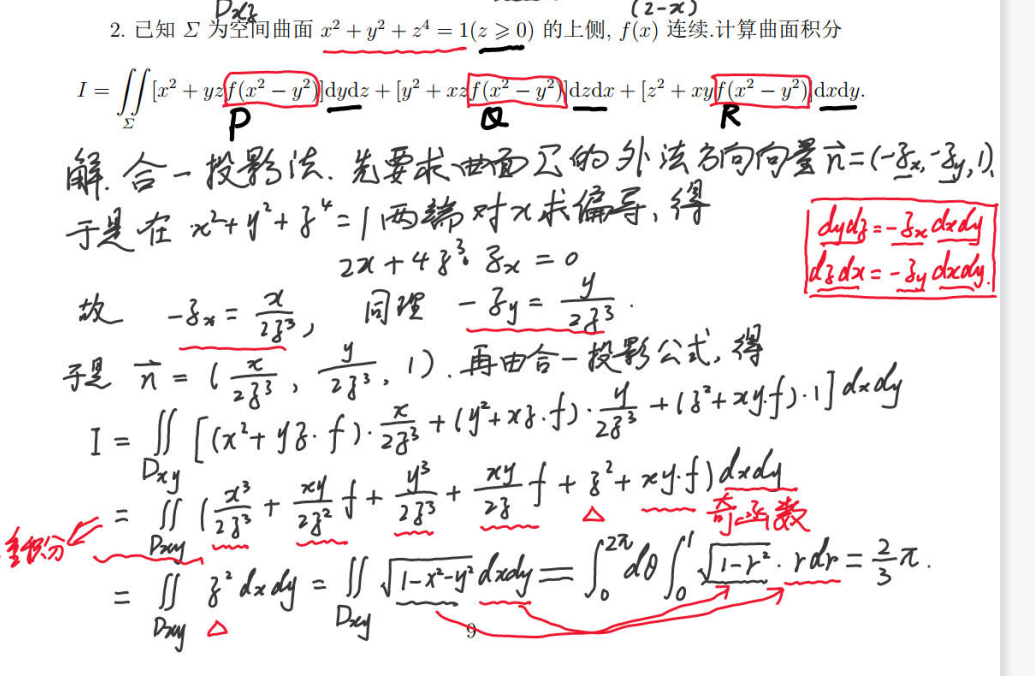 Dxz
(2-x)
2. 已知 Σ 为空间曲面 x² + y² + z⁴ = 1(z ⩾ 0) 的上侧, f(x) 连续.计算曲面积分
I = ∬_Σ [x² + yzf(x² − y²)]dydz + [y² + xzf(x² − y²)]dzdx + [z² + xyf(x² − y²)]dxdy.
P Q R
解. 合一投影法. 先要求曲面Σ的外法方向向量 n⃗=(-z_x,-z_y,1),
于是在 x²+y²+z⁴=1 两端对x求偏导, 得
dydz=-z_x dxdy
2x+4z³·z_x=0
dzdx=-z_y dxdy.
故 -z_x = x/2z³, 同理 -z_y = y/2z³.
于是 n⃗ = (x/2z³, y/2z³, 1). 再由合一投影公式, 得
I = ∬_Dxy [(x²+yz·f)·x/2z³+(y²+xz·f)·y/2z³+(z²+xy·f)·1]dxdy
= ∬_Dxy (x³/2z³ + xy/2z² f + y³/2z³ + xy/2z f + z² + xy·f)dxdy
重积分 奇函数
= ∬_Dxy z²dxdy = ∬_Dxy √(1-x²-y²) dxdy = ∫₀^2π dθ ∫₀¹ √(1-r²)·rdr = 2/3 π.
9